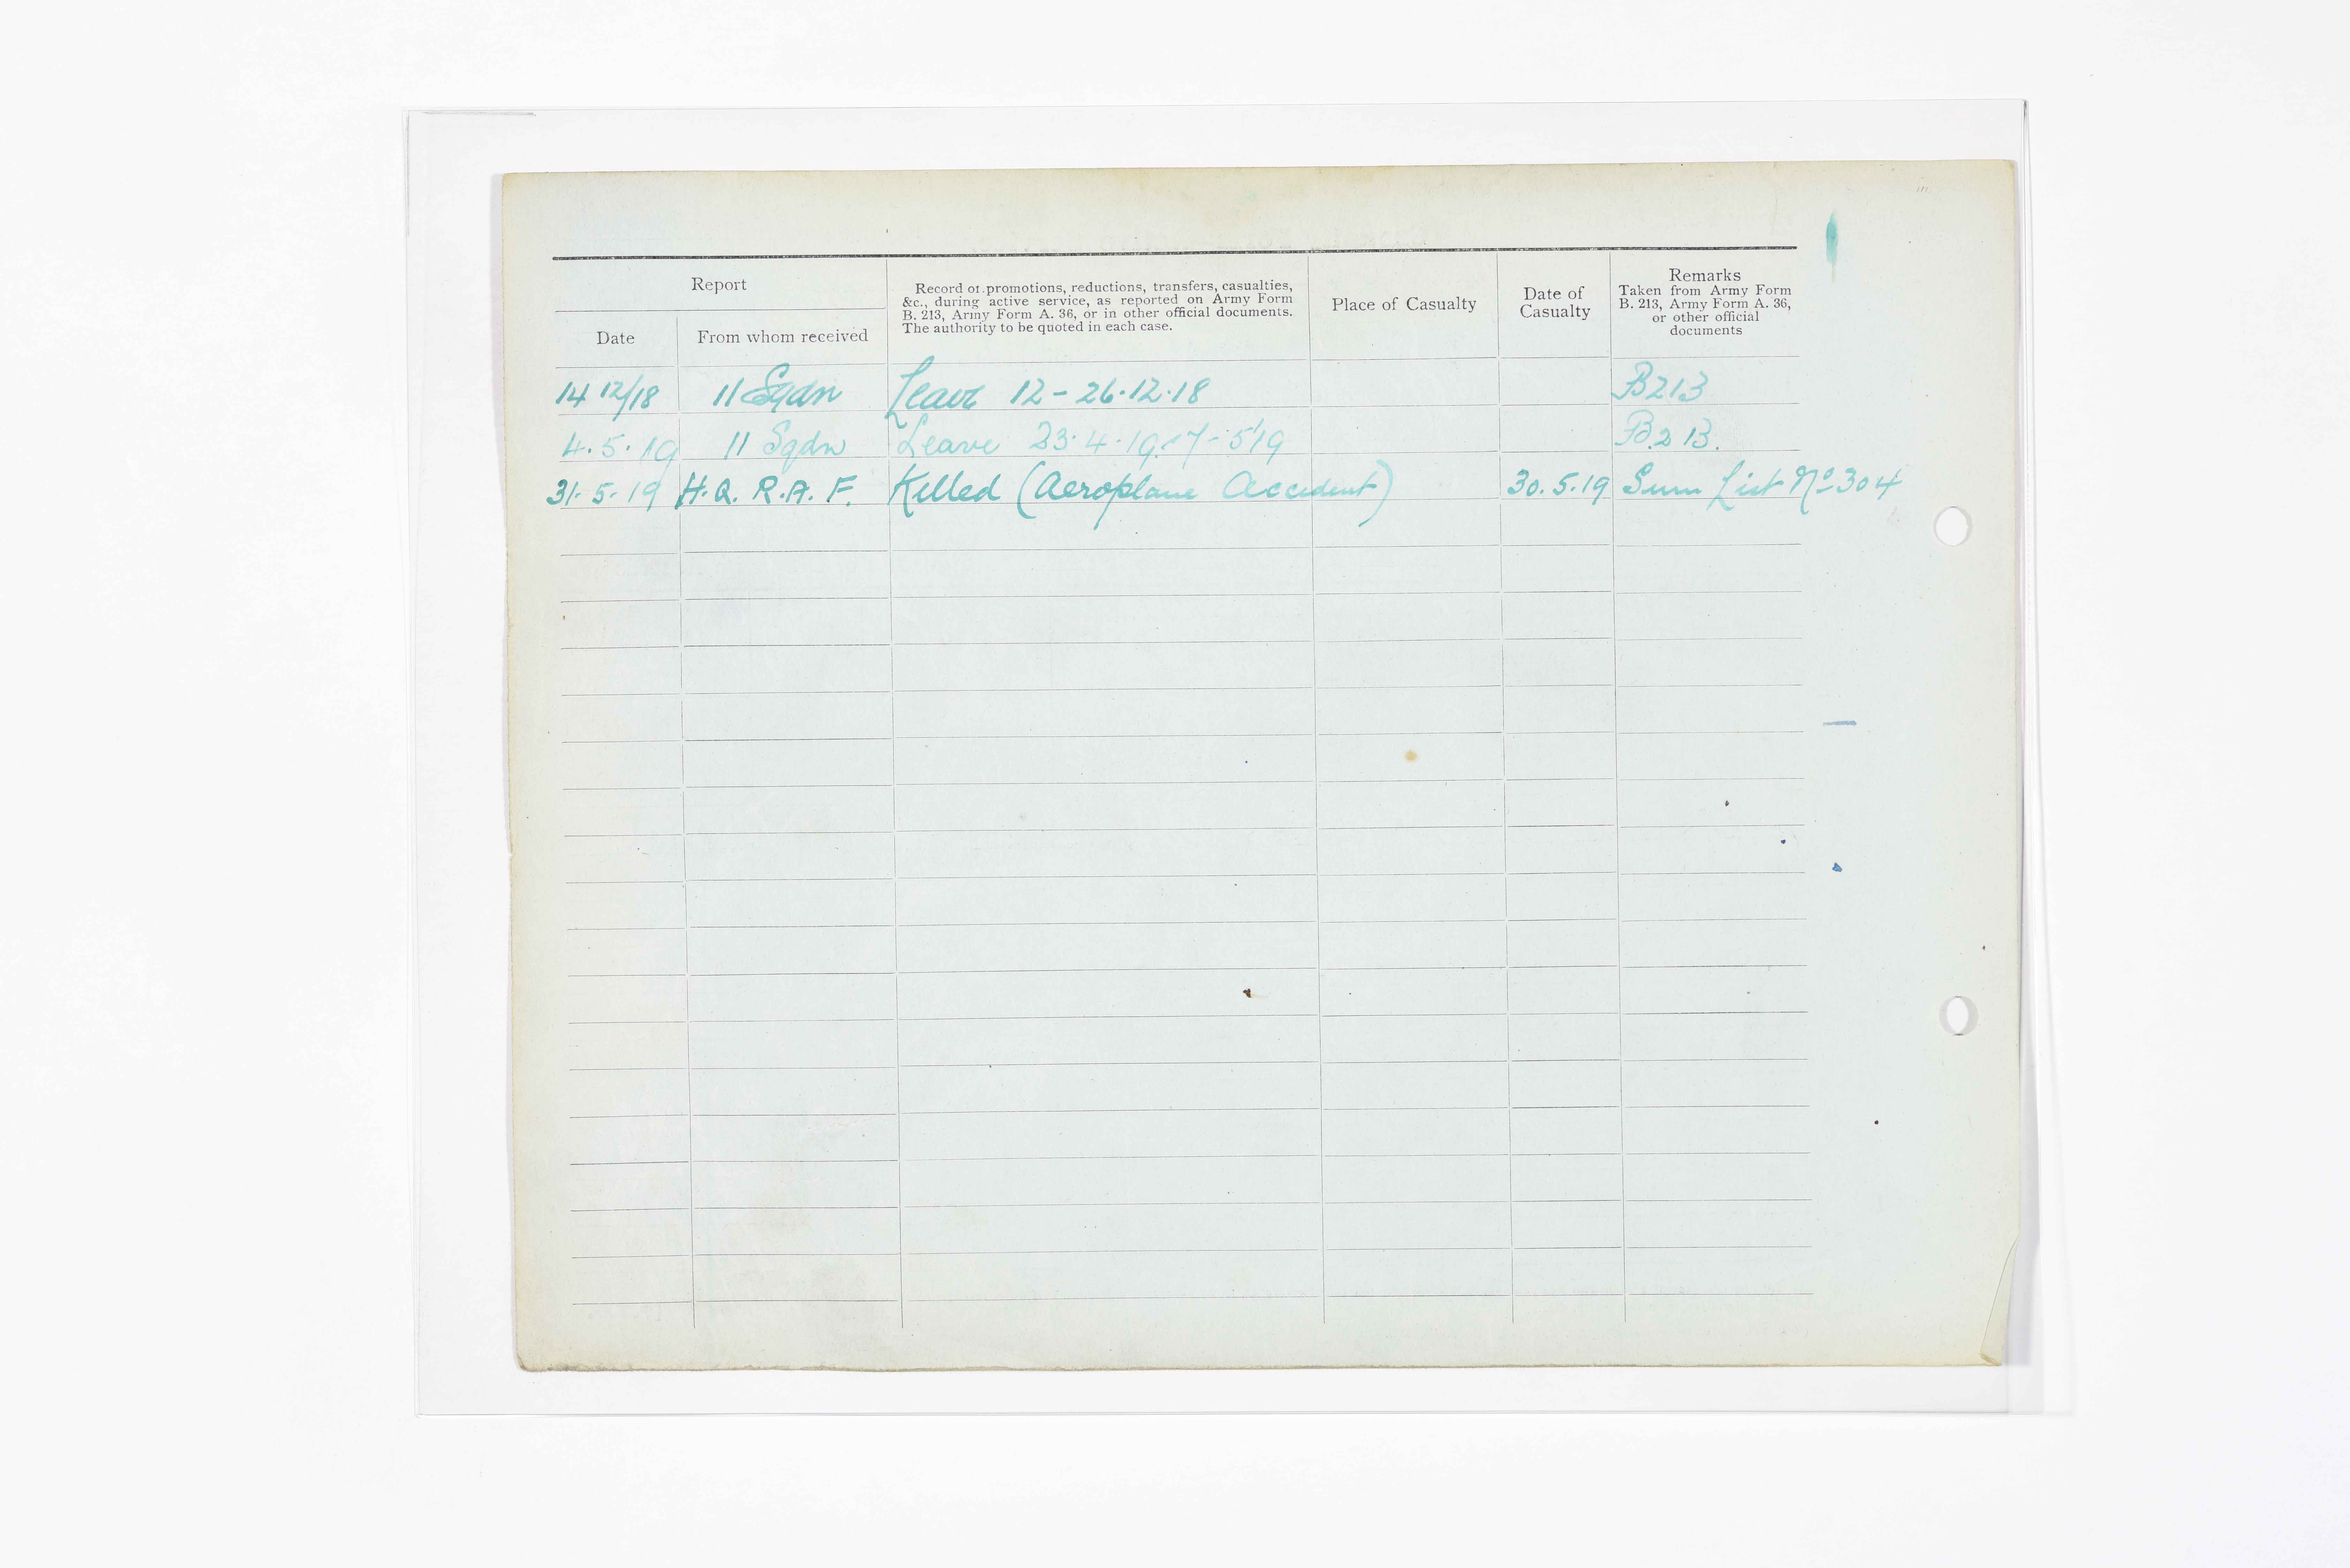 Report
Record of promotions, reductions, transfers, casualties,
&c., during active service, as reported on Army Form
B. 213, Army Form A. 36, or in other official documents.
The authority to be quoted in each case.
Place of Casualty
Date of
Casualty
Remarks
Taken from Army Form
B. 213, Army Form A. 36,
or other official
documents
Date
From whom received
14 12/18 11 Sqdn Leave 12 - 26.12.18 B213
4.5.19 11 Sqdn Leave 23.4.19.-7-5'19 B.213.
31.5.19 H.Q. R.A.F. Killed (Aeroplane Accident) 30.5.19 Sum List No 304